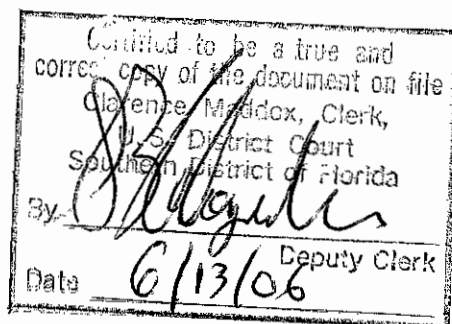 Certified to be a true and
correct copy of the document on file
Clarence Maddox, Clerk,
U.S. District Court
Southern District of Florida
By
Deputy Clerk
Date 6/13/06